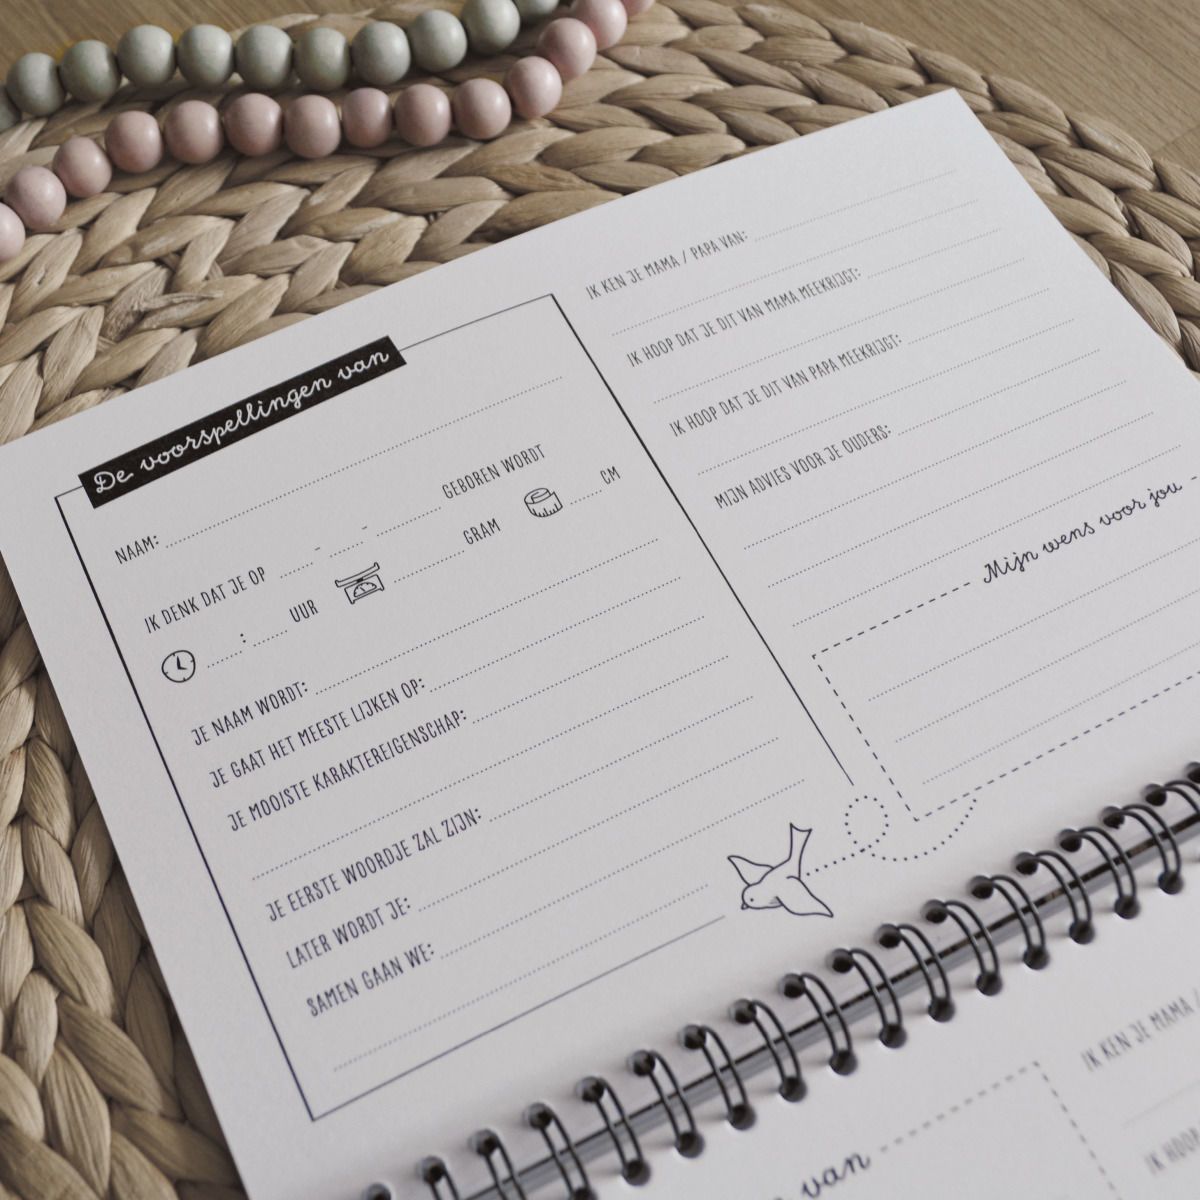 De voorspellingen van
NAAM:
IK DENK DAT JE OP - - GEBOREN WORDT
: UUR GRAM CM
JE NAAM WORDT:
JE GAAT HET MEESTE LIJKEN OP:
JE MOOISTE KARAKTEREIGENSCHAP:
JE EERSTE WOORDJE ZAL ZIJN:
LATER WORDT JE:
SAMEN GAAN WE:
IK KEN JE MAMA / PAPA VAN:
IK HOOP DAT JE DIT VAN MAMA MEEKRIJGT:
IK HOOP DAT JE DIT VAN PAPA MEEKRIJGT:
MIJN ADVIES VOOR JE OUDERS:
Mijn wens voor jou
van
IK KEN JE MAMA /
IK HOOP